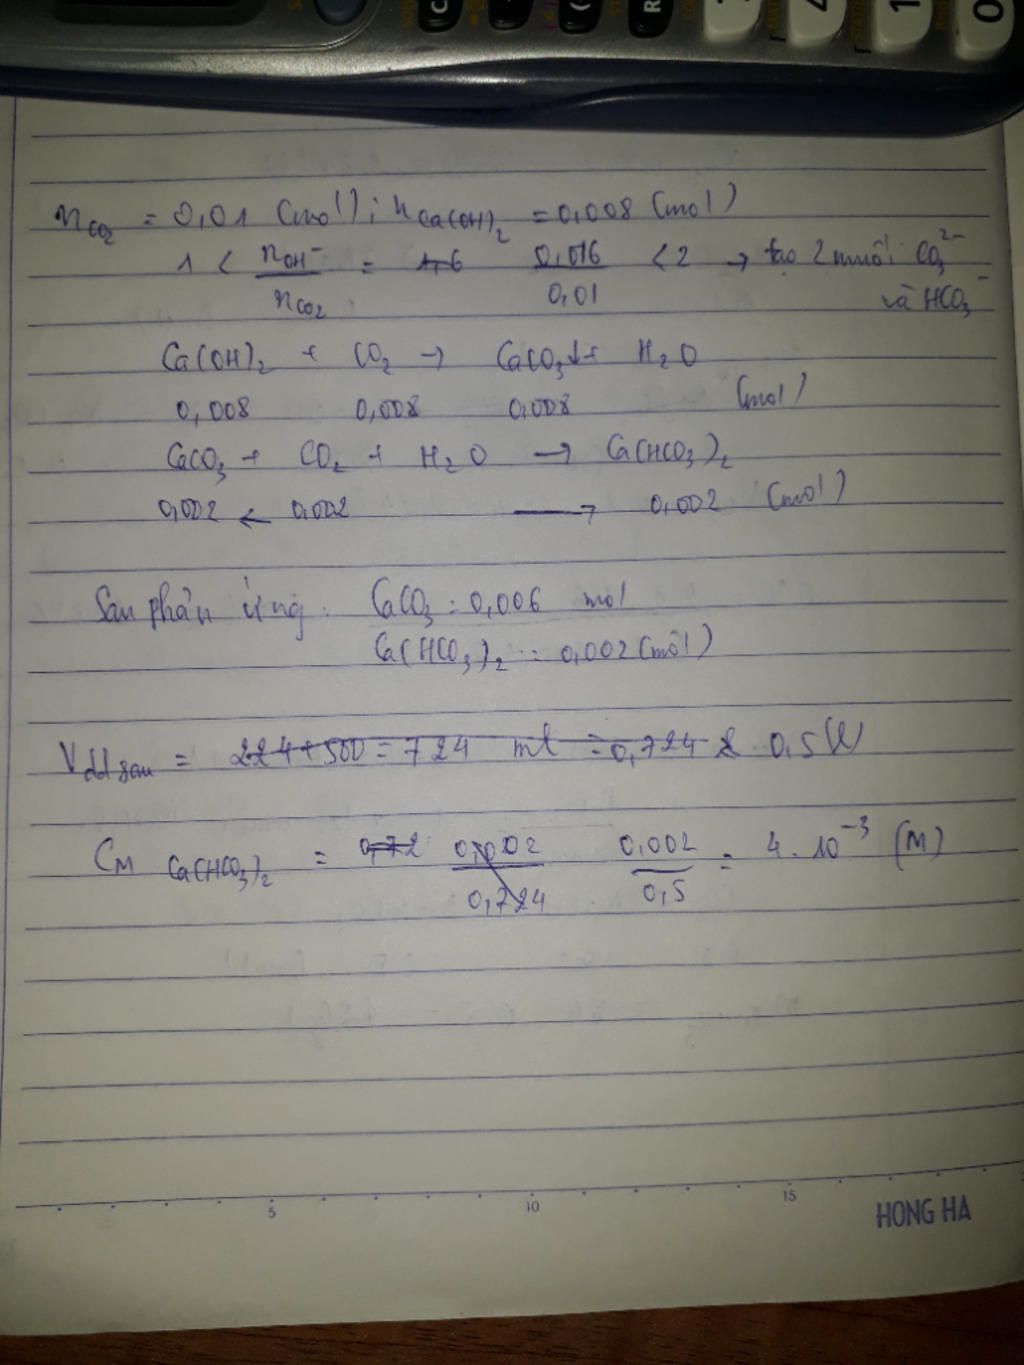 n CO₂ = 0,01 (mol) ; n Ca(OH)₂ = 0,008 (mol)
1 < nOH⁻/nCO₂ = 1,6 0,016/0,01 < 2 → tạo 2 muối CO₃²⁻
và HCO₃⁻
Ca(OH)₂ + CO₂ → CaCO₃↓ + H₂O
0,008 0,008 0,008 (mol)
CaCO₃ + CO₂ + H₂O → Ca(HCO₃)₂
0,002 ← 0,002 → 0,002 (mol)
Sau phản ứng : CaCO₃ : 0,006 mol
Ca(HCO₃)₂ : 0,002 (mol)
V dd sau = 224 + 500 = 724 ml = 0,724 l 0,5 (l)
CM Ca(HCO₃)₂ = 0,72 0,002/0,724 0,002/0,5 = 4.10⁻³ (M)
5 10 15
HONG HA